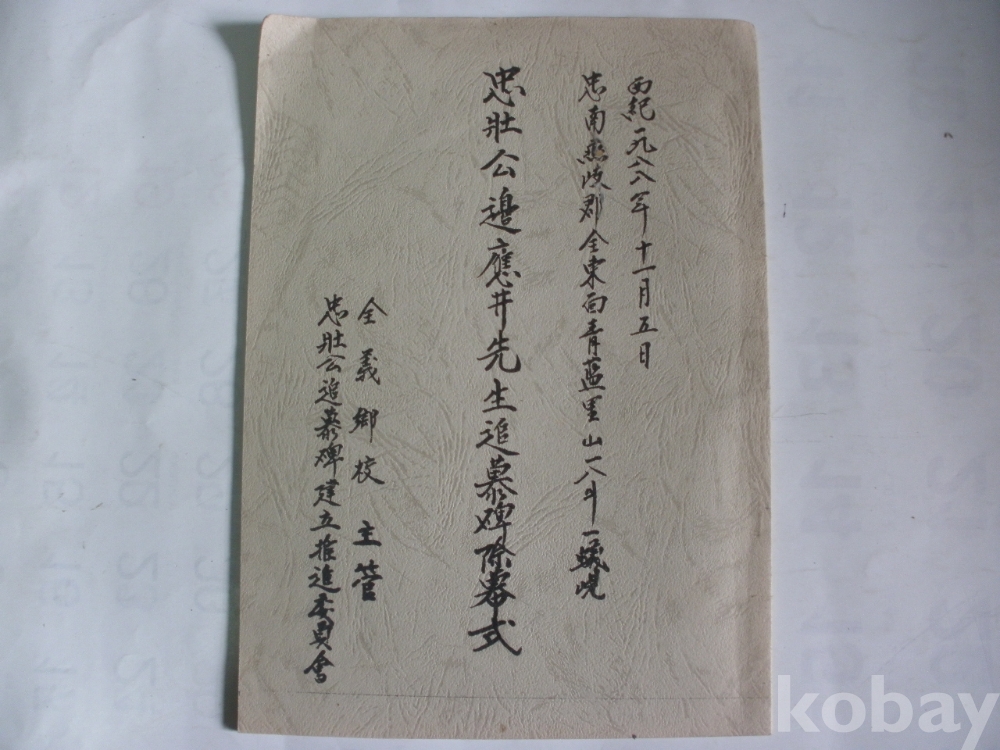 西紀一九八八年十一月五日
忠南燕岐郡全東面靑藍里山一八의一蟻峴
忠壯公邊應井先生追慕碑除幕式
全義鄕校 主管
忠壯公追慕碑建立推進委員會
kobay